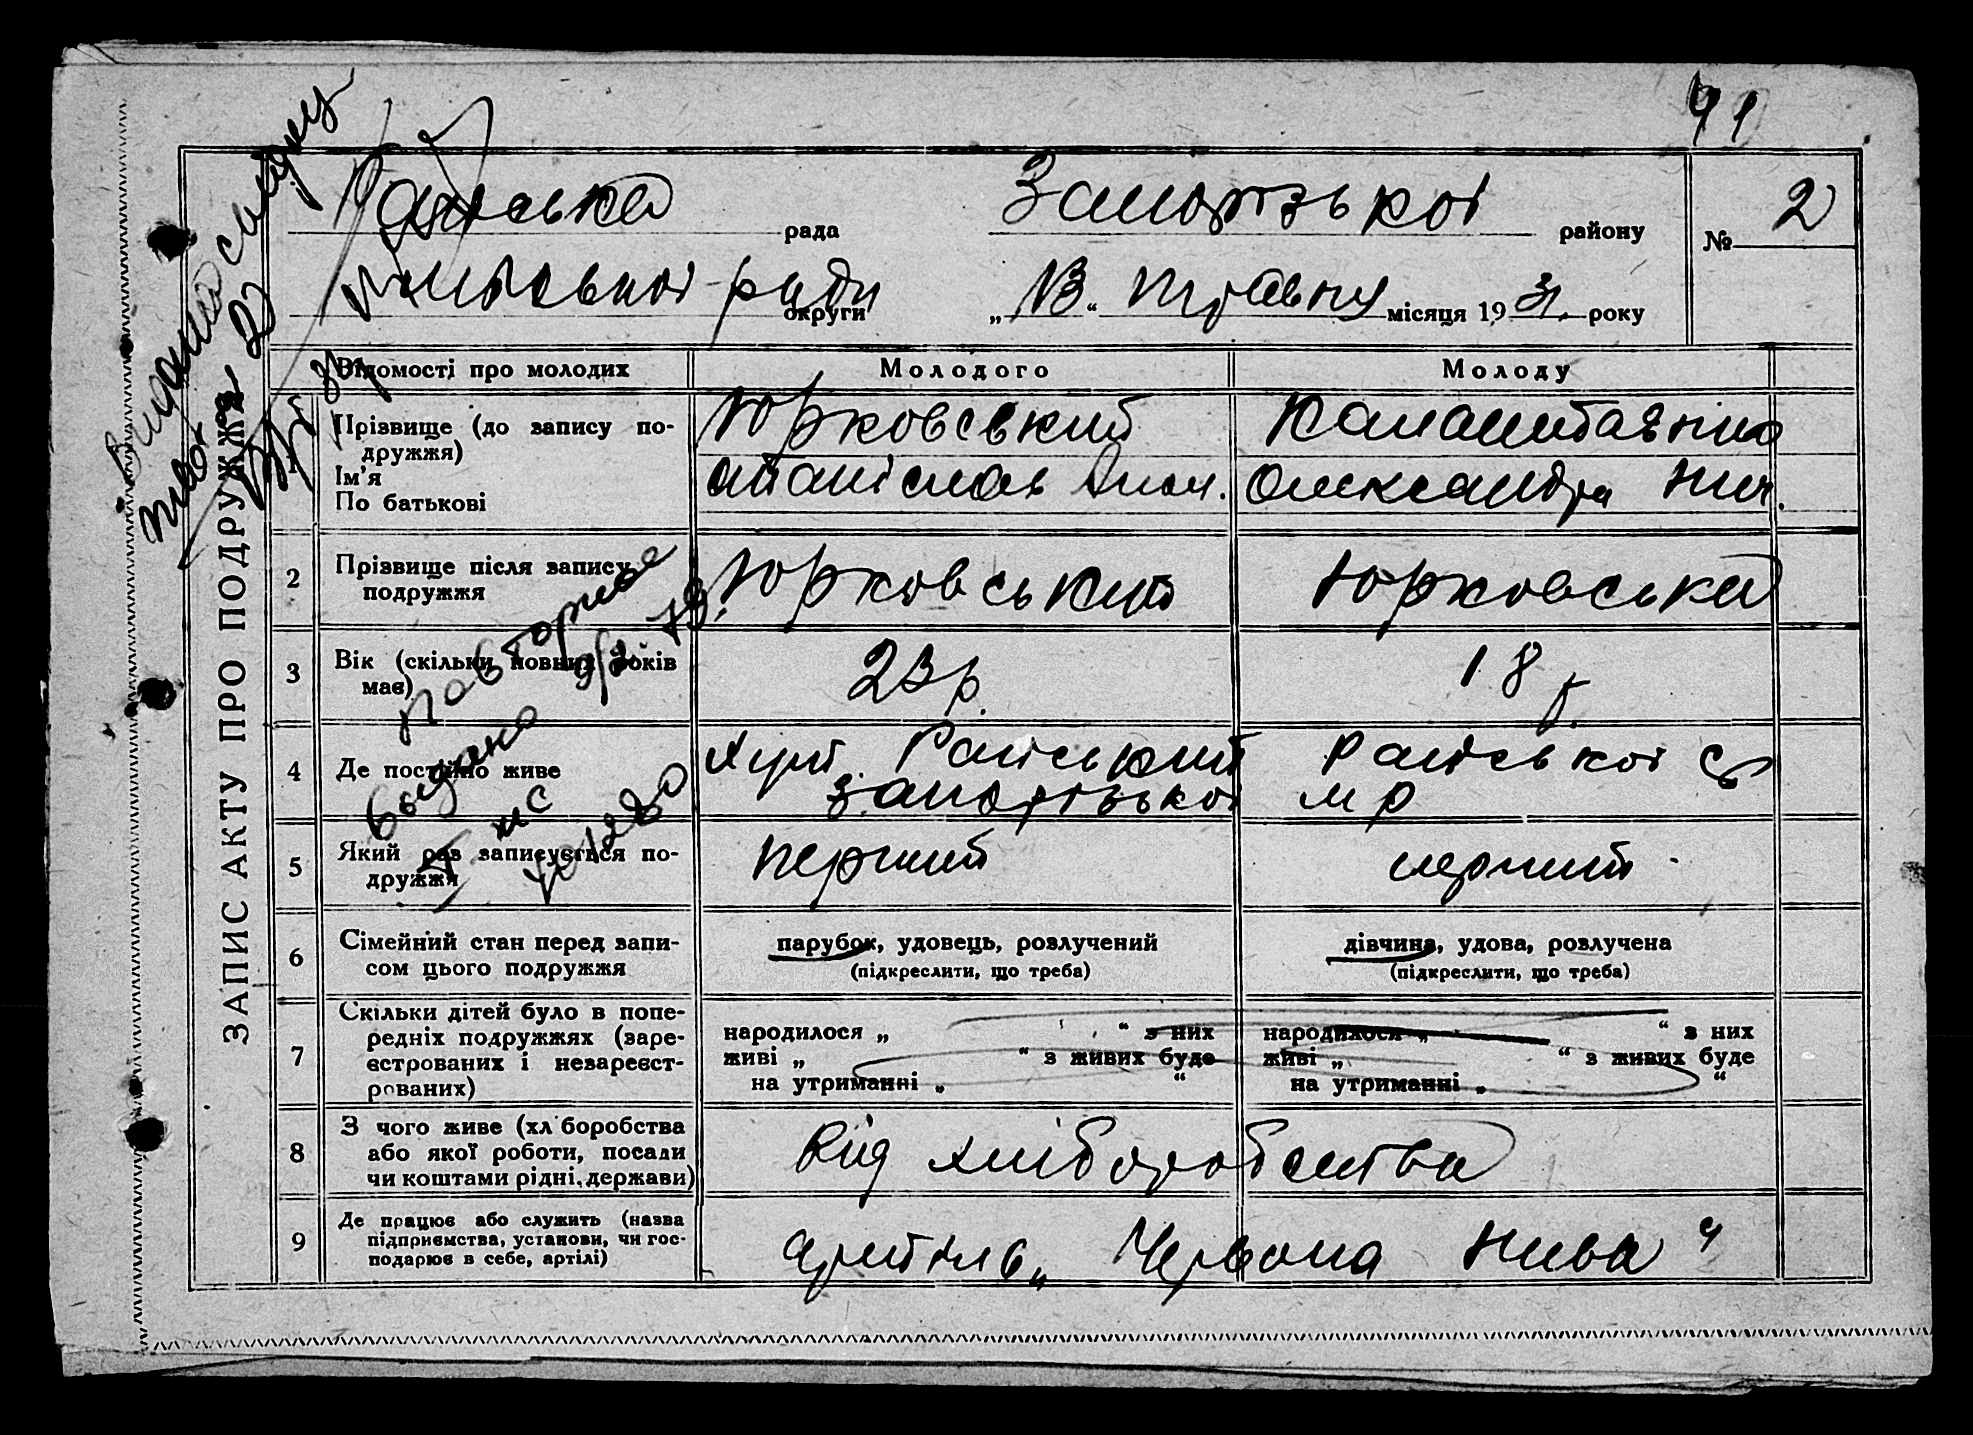 91
Раївська рада Запорізької району № 2
міської ради округи „13“ травня місяця 1931 року
ЗАПИС АКТУ ПРО ПОДРУЖЖЯ
Відомості про молодих Молодого Молоду
Прізвище (до запису по- Юрковський
дружжя)
Ім'я Станіслав Олександра
По батькові
2 Прізвище після запису Юрковський Юрковська
подружжя
повторное
3 Вік (скільки повних років 23 р. 18 р.
має)
4 Де постійно живе Хут. Раївський Раївської с
Запорізької м р
выдано
5 Який раз записується по- перший перший
дружжя
6 Сімейний стан перед запи- парубок, удовець, розлучений дівчина, удова, розлучена
сом цього подружжя (підкреслити, що треба) (підкреслити, що треба)
7 Скільки дітей було в попе-
редніх подружжях (заре- народилося „ “ з них народилося „ “ з них
єстрованих і незареєст- живі „ “ з живих буде живі „ “ з живих буде
рованих) на утриманні „ “ на утриманні „ “
8 З чого живе (хліборобства
або якої роботи, посади Від хліборобства
чи коштами рідні, держави)
9 Де працює або служить (назва
підприємства, установи, чи гос- артіль „Червона Нива“
подарює в себе, артілі)